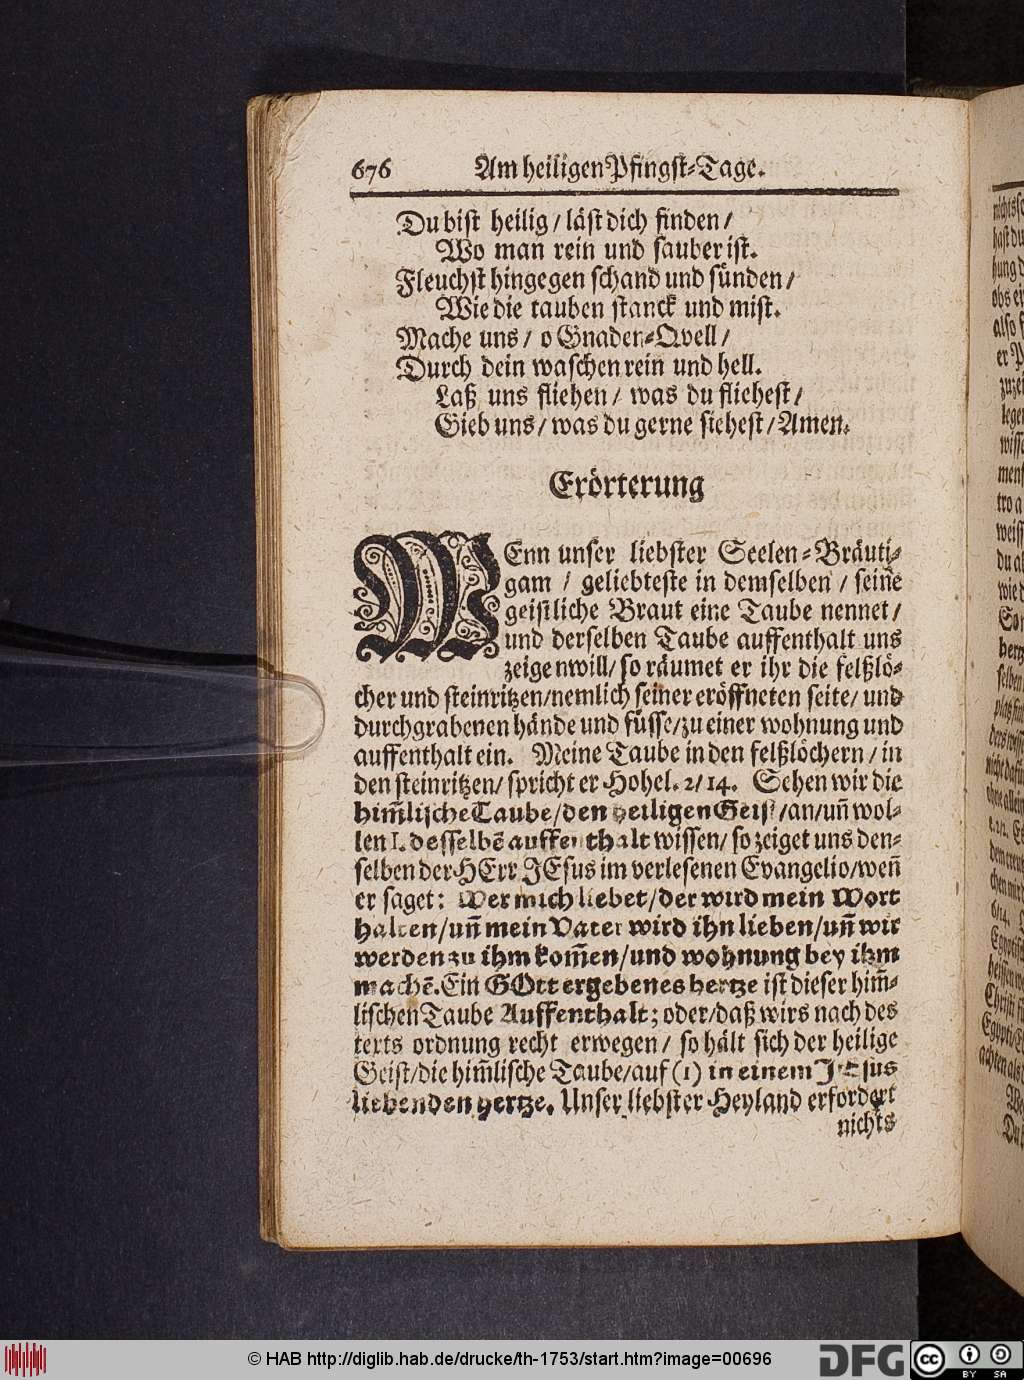 676 Am heiligen Pfingst-Tage.
Du bist heilig / läst dich finden /
Wo man rein und sauber ist.
Fleuchst hingegen schand und sünden /
Wie die tauben stanck und mist.
Mache uns / o Gnaden-Qvell /
Durch dein waschen rein und hell.
Laß uns fliehen / was du fliehest /
Gieb uns / was du gerne siehest / Amen.
Erörterung
WEnn unser liebster Seelen-Bräuti-
gam / geliebteste in demselben / seine
geistliche Braut eine Taube nennet /
und derselben Taube auffenthalt uns
zeigen will / so räumet er ihr die felßlö-
cher und steinritzen / nemlich seiner eröffneten seite / und
durchgrabenen hände und füsse / zu einer wohnung und
auffenthalt ein. Meine Taube in den felßlöchern / in
den steinritzen / spricht er Hohel. 2 / 14. Sehen wir die
him̃lische Taube / den heiligen Geist / an / uñ wol-
len I. desselbẽ auffenthalt wissen / so zeiget uns den-
selben der HErr JEsus im verlesenen Evangelio / weñ
er saget: Wer mich liebet / der wird mein Wort
halten / uñ mein Vater wird ihn lieben / uñ wir
werden zu ihm kom̃en / und wohnung bey ihm
machẽ. Ein GOtt ergebenes hertze ist dieser him̃-
lischen Taube Auffenthalt; oder / daß wirs nach des
texts ordnung recht erwegen / so hält sich der heilige
Geist / die him̃lische Taube / auf (1) in einem JEsus
liebenden hertze. Unser liebster Heyland erfordert
nichts
© HAB http://diglib.hab.de/drucke/th-1753/start.htm?image=00696
DFG
cc BY SA